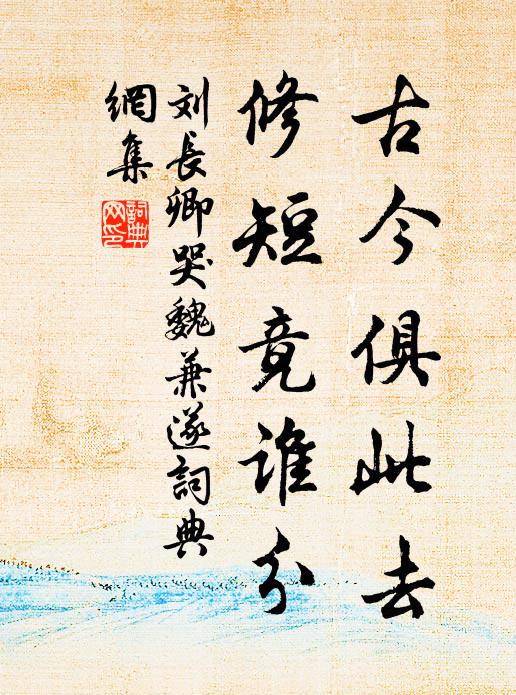 古今俱此去
修短竟谁分
刘長卿哭魏兼遂詞典
網集
詞典
网印